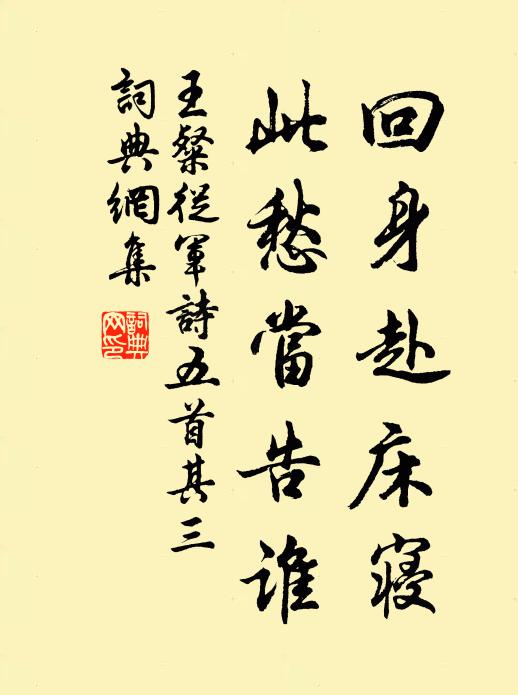 回身赴床寝
此愁當告誰
王粲從軍詩五首其三
詞典網集
詞典網印